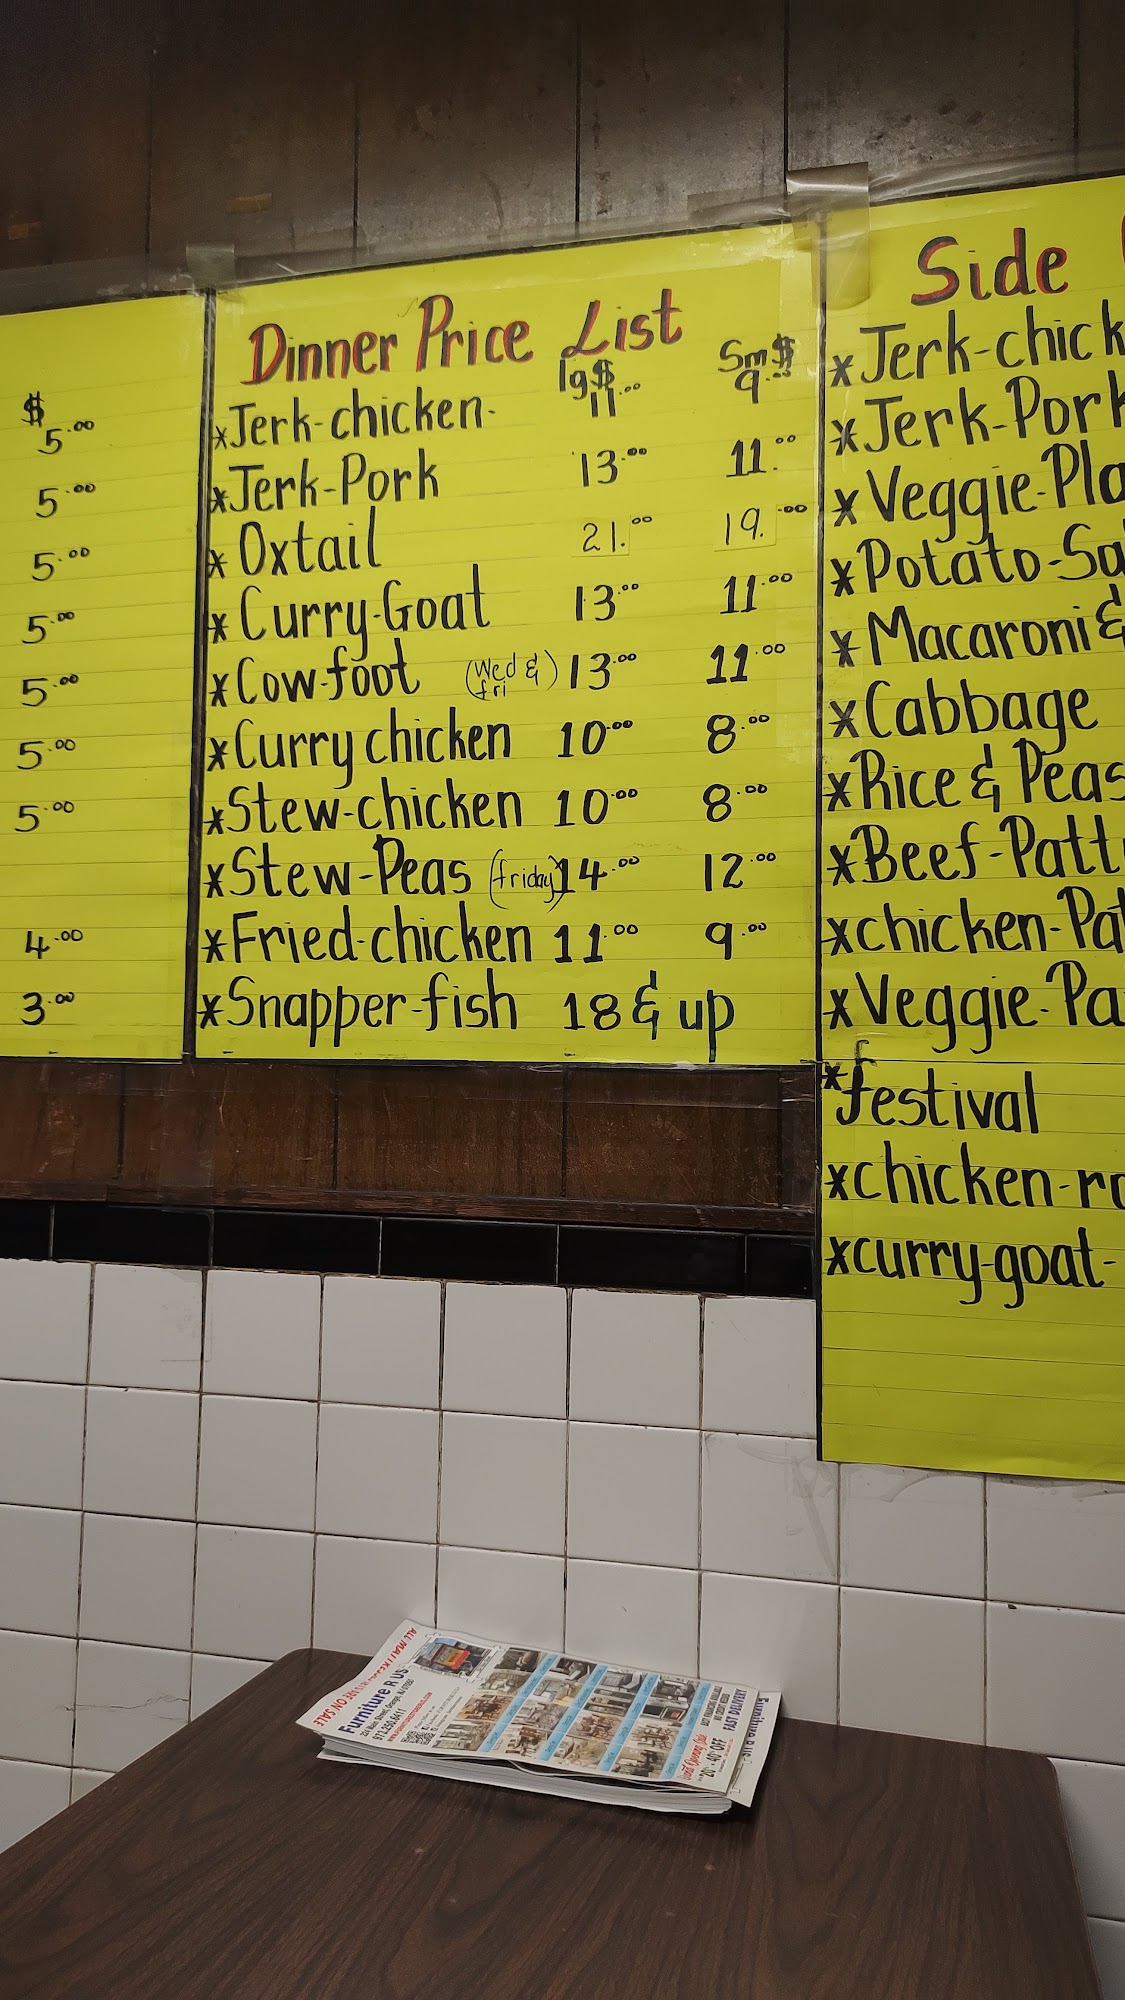 $
5.00
5.00
5.00
5.00
5.00
5.00
5.00
4.00
3.00
Dinner Price List
lg$ Sm$
*Jerk-chicken- 11.00 9.00
*Jerk-Pork 13.00 11.00
* Oxtail 21.00 19.00
* Curry-Goat 13.00 11.00
*Cow-foot (Wed & fri) 13.00 11.00
*Curry chicken 10.00 8.00
*Stew-chicken 10.00 8.00
*Stew-Peas (friday) 14.00 12.00
*Fried-chicken 11.00 9.00
*Snapper-fish 18 & up
Side
*Jerk-chick
*Jerk-Pork
*Veggie-Pla
*Potato-Sa
*Macaroni &
*Cabbage
*Rice & Peas
*Beef-Patt
*chicken-Pa
*Veggie-Pa
*festival
*chicken-ro
*curry-goat-
ON SALE
Furniture R US
FAST DELIVERY